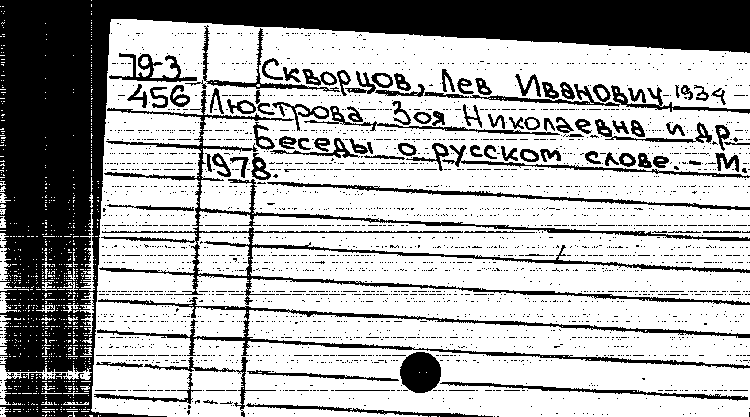 79-3 Скворцов, Лев Иванович, 1934
456 Люстрова, Зоя Николаевна и др.
Беседы о русском слове. - М.
1978.